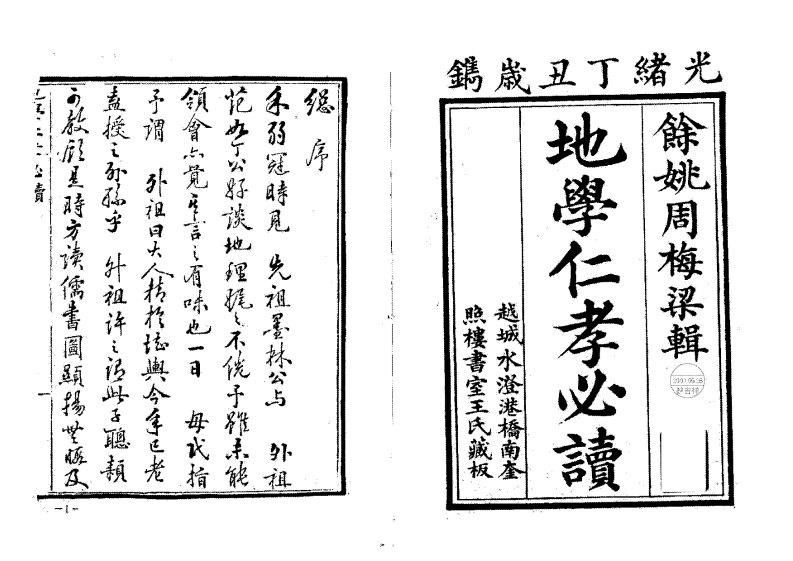 光緒丁丑歲鐫
餘姚周梅梁輯
地學仁孝必讀
越城水澄港橋南奎
照樓書室王氏藏板
總序
余弱冠時見 先祖墨林公与 外祖
范丁公好談地理娓之不倦予雖未能
領會亦覺其言之有味也一日 毋代指
予謂 外祖曰大人精於堪輿今年已老
盍授之外孫乎 外祖許之謂此子聰穎
可教顧是時方讀儒書圖顯揚無暇及
必讀
-1-